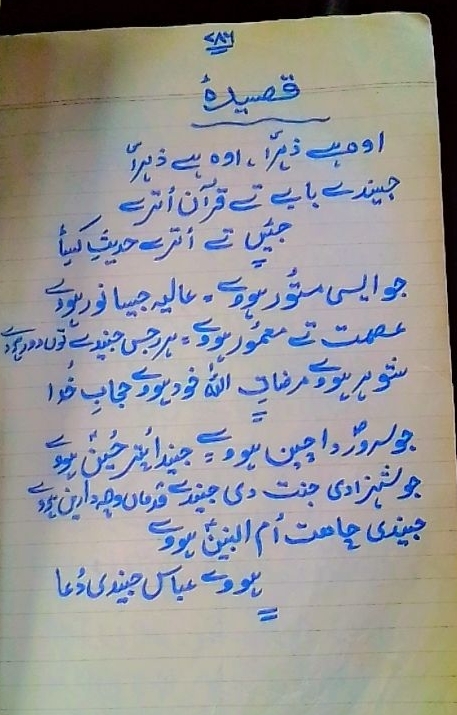 ۷۸۶
قصیدہ
اوہ ہے ذہراؑ ، اوہ ہے ذہراؑ
جیندے بابے تے قرآن اُترے
جئیں تے اُترے حدیثِ کساُ
جو ایسی مستُور ہووے - عالیہ جیسا نور ہووے
عصمت تے معمُور ہووے - ہر رجس جیندے توں دور ہووے
شوہر ہووے مرضاتِ اللہ خود ہووے حجابِ خُدا
جو سرورؐ دا چین ہووے جیندا پُتر حُسینؑ ہووے
جو شہزادی جنت دی جیندے قدماں وچ دارین ہووے
جیندی چاھت اُم البنینؑ ہووے
ہووے عباس جیندی دُعا